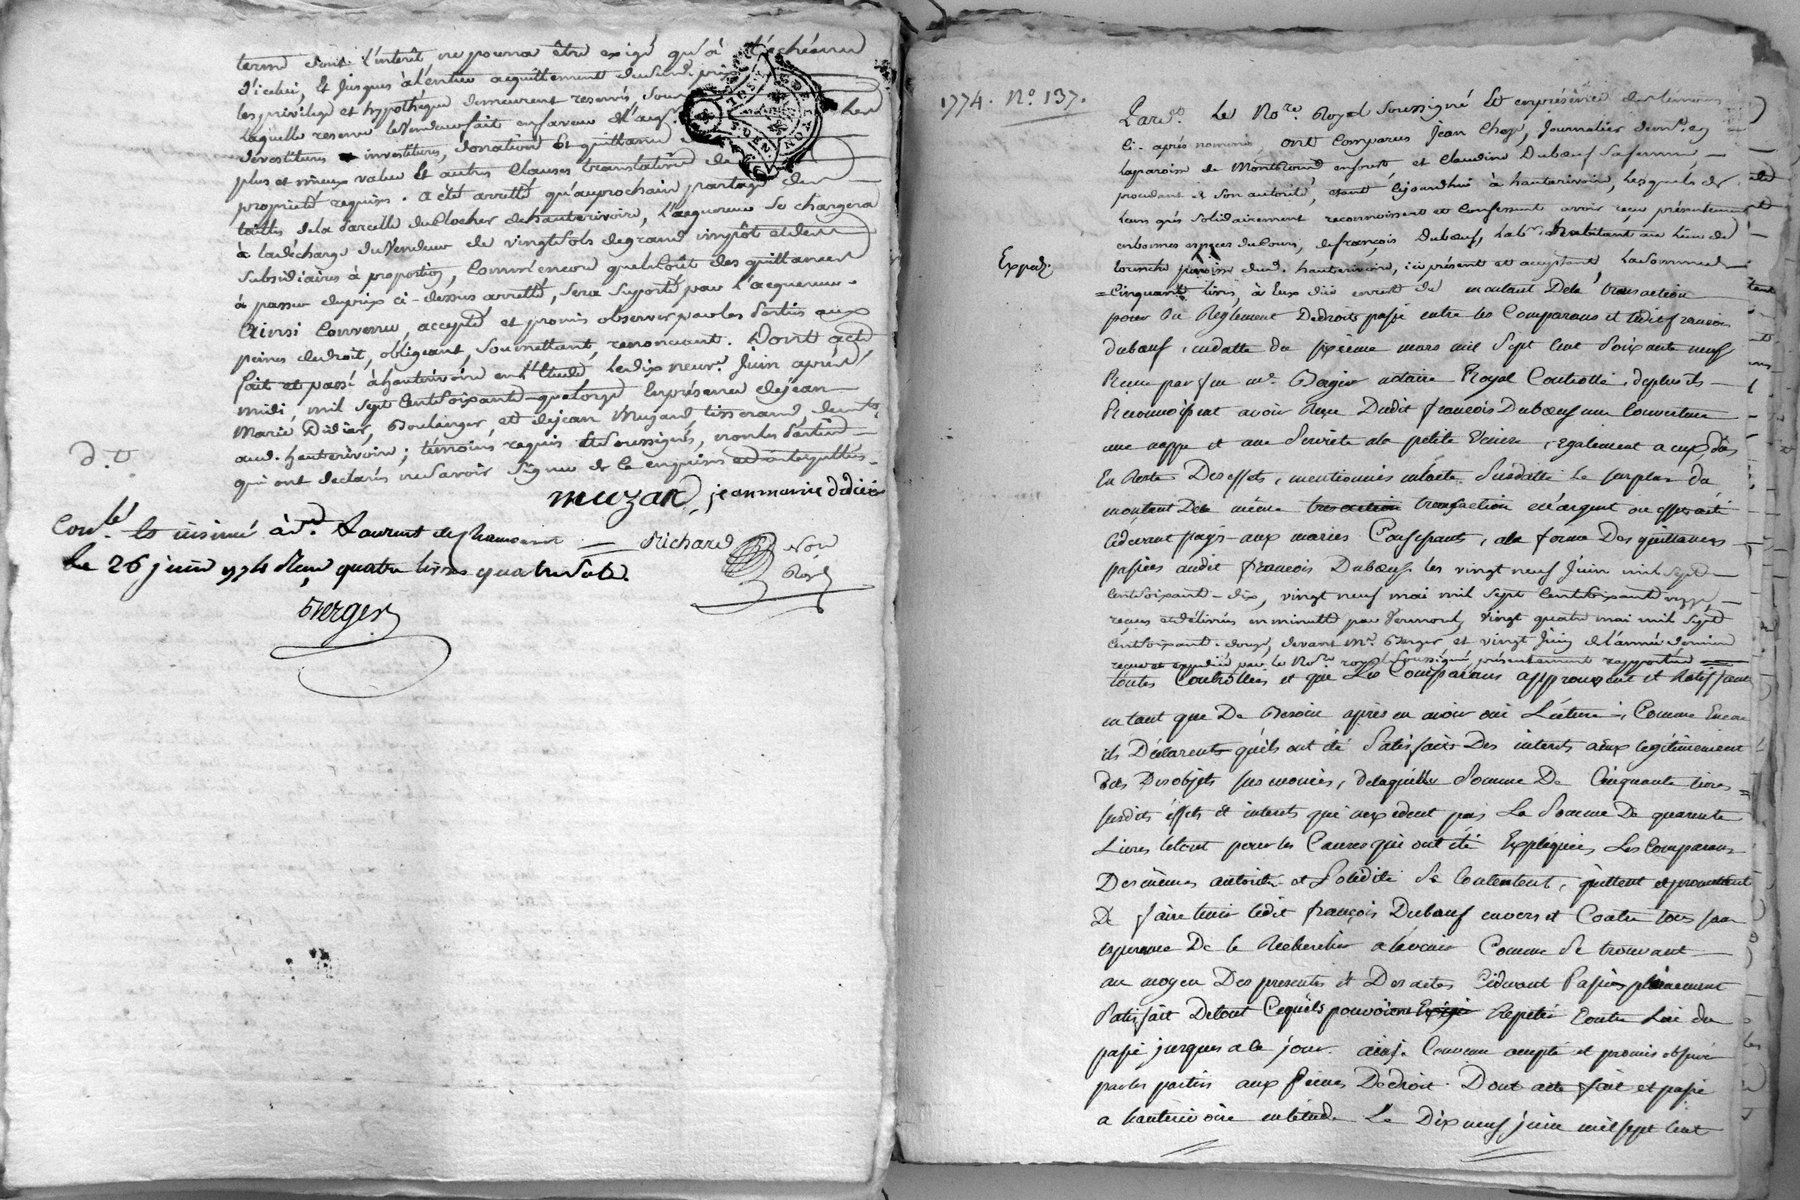 terme dont l'interêt ne pourra être exigé qu'à l'échéance
d'icelui, Et Jusques à l'entier acquittement dud. prix
les privilège et hypothèque demeurent reservés sous
laquelle reserve le Vendeur fait en faveur de l'acq.
devestiture investiture, donation Et quittance de
plus et mieux value Et autres Clauses translatives de
propriété requises. a été arretté qu'au prochain partage des
tailles de la Parcelle du Clocher de hauterivoire, l'acquereur se chargera
à la décharge du Vendeur de vingt sols de grand impôt et des
subsidiaires à proportion, Comm'encore que le Coût des quittances
à passer du prix ci-dessus arretté, sera suporté par l'acquereur.
Ainsi Convenu, accepté et promis observer par les Parties aux
peines de droit, obligeant, Soumettant, renonçant. Dont acte
fait et passé à hauterivoire en l'Etude Le dix neuf Juin après
midi, mil sept Cent soixante quatorze En présence de jean
Marie Didier, Boulanger, et de jean Muzard, tisserand, dem.ts
aud. hauterivoire; témoins requis et Soussignés, non les Parties
qui ont declarés ne savoir Signer de ce enquises et interpellées.
D. V.
muzard, jean marie didier
Con.lé et insinué à S.t Laurent de Chamousset
Richard Not. Roy.l
le 26 juin 1774 Reçu quatre livres quatre sols
Berger
1774. N.o 137.
Pard.t Le No.re Royal Soussigné Et en présence des témoins
ci-après nommés, ont Comparus Jean Choz, Journalier dem.t en
la paroisse de Montromand en forêt, et Claudine Duboeuf Sa femme,
procedant de Son autorité, étant Cejourdhui à hauterivoire, Lesquels de
Leurs grés Solidairement reconnoissent et Confessent avoir reçu présentement
Expéd.
en bonnes especes du Cours, de françois Duboeuf, Lab.r habitant au Lieu de
paroisse dud. hauterivoire, ici présent et acceptant, La Somme de
= Cinquante livres, à Eux du montant De la transaction
pour Du Reglement De droits passé entre les Comparans et ledit francois
duboeuf, en datte du sixieme mars mil Sept Cent Soixante neuf
Recue par feu m.e Berger notaire Royal Controllé, deplus ils
Reconnoissent avoir Reçu Dudit francois Duboeuf une Couverture
une nappe et une Serviete ala petite Venise, également a eux dûs
En Reste Des effets, mentionnés en l'acte Susdatté Le surplus du
montant De la même transaction en argent ou effets a été
cidevant payé aux mariés Confessants, ala forme Des quittances
passées audit francois Duboeuf les vingt neuf Juin mil Sept
Cent soixante-dix, vingt neuf mai mil Sept Cent soixante onze,
recues et délivrées en minutte par Vermont, Vingt quatre mai mil Sept
Cent soixante-douze, devant M.e Berger et vingt Juin de l'année derniere
recue et expediée par le No.re royal Soussigné, présentement rapportées
toutes Controllées et que Les Comparans approuvent et Ratiffient
en tant que De Besoin après en avoir oui Lecture; Comme Encore
ils Déclarent qu'ils ont été Satisfaits Des interets a eux legitimement
dûs Des objets sus énoncés, de laquelle Somme De Cinquante livres =
susdits effets et interets qui n'excedent pas La Somme De quarante
Livres Letout pour les Causes qui ont été Expliquées, Les Comparans
Des mêmes autorité et Solidité Se Contentent, quittent et promettent
De faire tenir ledit françois Duboeuf envers et Contre tous sans
esperance De le Rechercher a l'avenir Comme Se trouvant
au moyen Des presentes et Des actes Cidevant Passés pleinement
Satisfait De tout Ce qu'ils pouvoient Repeter Contre Lui du
passé jusques a ce jour. ainsi Convenu accepté et promis observé
par les parties aux peines De droit. Dont acte fait et passé
a hauterivoire en l'etude Le Dix neuf juin mil sept Cent